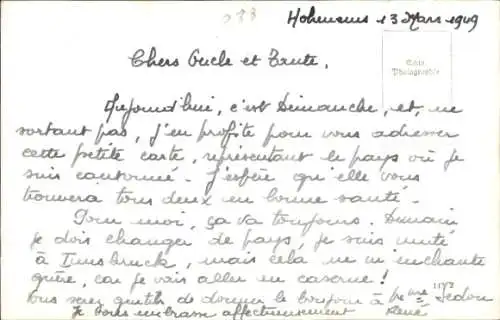 288
Hohenems 13 Mars 1949
Echte
Photographie
Chers Oncle et Tante,
Aujourd'hui, c'est Dimanche, et, ne
sortant pas, j'en profite pour vous adresser
cette petite carte, représentant le pays où je
suis cantonné. J'espère qu'elle vous
trouvera tous deux en bonne santé.
Pour moi, ça va toujours. Demain
je dois changer de pays, je suis muté
à Innsbruck, mais cela ne m'enchante
guère, car je vais aller en caserne!
Vous serez gentils de donner le bonjour à
Je vous embrasse affectueusement
René